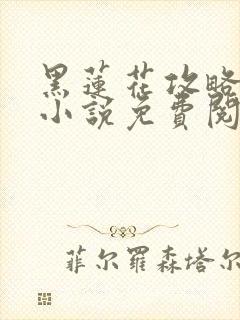 黑蓮花攻略
小說免費閱
菲尔羅森塔尔